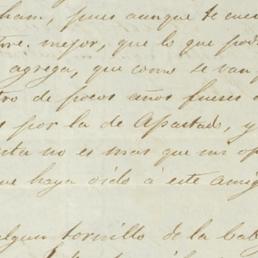 ham, pues aunque te cues
mejor, que lo que pod
agrega, que como se van p
tro de pocos años fuese
s por la de Apartado, y
nta no es mas que mi op
ue haya oido á este amig
algun tornillo de la cab